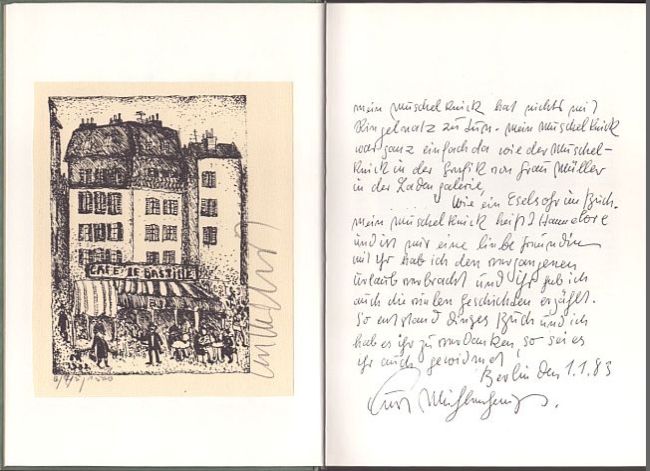 CAFE LE BASTILLE
mein Muschelknick hat nichts mit
Ringelnatz zu tun. mein Muschelknick
war ganz einfach da wie der Muschel-
knick in der Grafik von Frau Müller
in der Ladengalerie,
wie ein Eselsohr im Buch.
mein Muschelknick heißt Hannelore
und ist mir eine liebe Freundin
mit ihr hab ich den vergangenen
Urlaub verbracht und ihr hab ich
auch die vielen Geschichten erzählt.
So entstand dieses Buch und ich
hab es ihr zu verdanken, so sei es
ihr auch gewidmet
Berlin den 1.1.83
Kurt Mühlenhaupt.